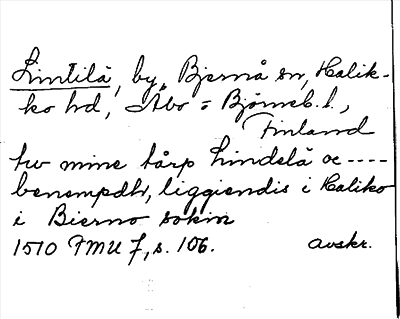 Lintilä, by, Bjernå sn, Halik-
ko hd, Åbo = Björneb. l.,
Finland
tw mine tårp Lindelä oc ----
benempdh, liggiendis i Haliko
i Bierno sokin
1510 FMU 7, s. 106. avskr.